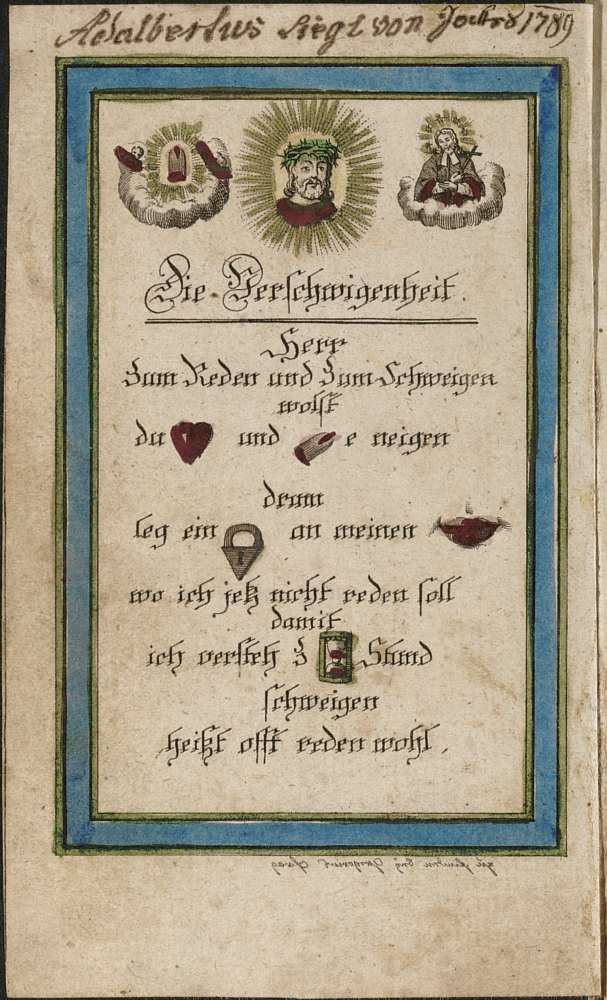 Adalbertus Siegl von 1789
Die Verschwigenheit.
Herr
Zum Reden und Zum Schweigen
wolst
du und e neigen
drum
leg ein an meinen
wo ich jetz nicht reden soll
damit
ich versteh z Stund
schweigen
heißt offt reden wohl.